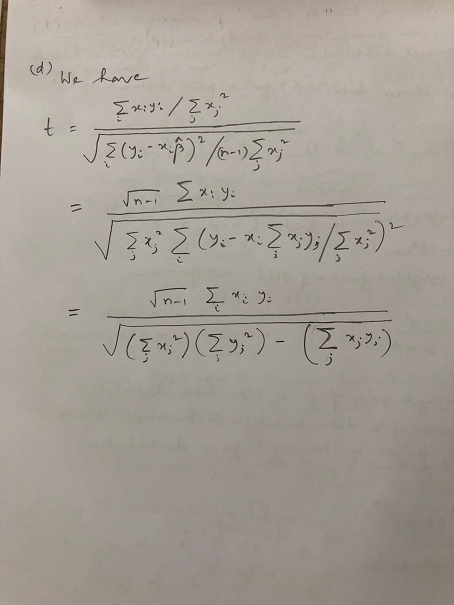 (d) We have
t = (∑_i x_i y_i / ∑_j x_j²) / √(∑_i (y_i - x_i β̂)² / (n-1) ∑_j x_j²)
= (√(n-1) ∑ x_i y_i) / √(∑_j x_j² ∑_i (y_i - x_i ∑_j x_j y_j / ∑_j x_j²)²)
= (√(n-1) ∑_i x_i y_i) / √((∑_j x_j²)(∑_i y_i²) - (∑_j x_j y_j))